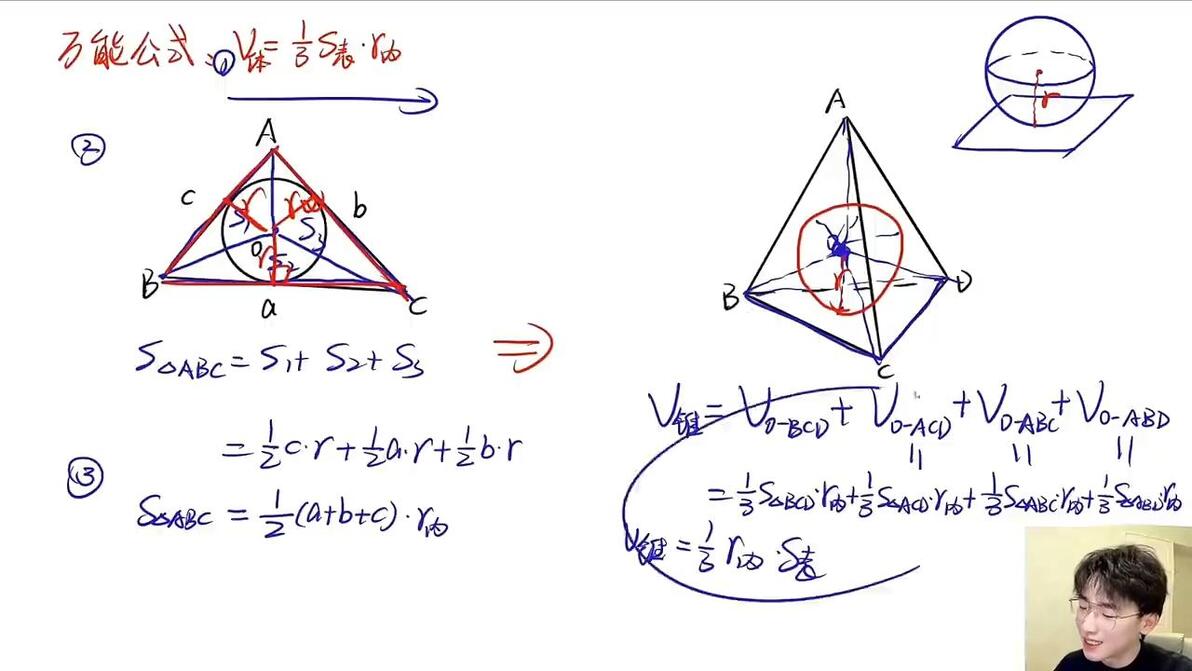 万能公式:① V体=⅓S表·r内
②
A
c
b
r
r内
S₁
S₃
O
r
S₂
B
a
C
S△ABC=S₁+S₂+S₃
=½c·r+½a·r+½b·r
③
S△ABC=½(a+b+c)·r内
⇒
r
A
O
r
B
D
C
V锥=V O-BCD+V O-ACD+V O-ABC+V O-ABD
=⅓S△BCD·r内+⅓S△ACD·r内+⅓S△ABC·r内+⅓S△ABD·r内
V锥=⅓r内·S表